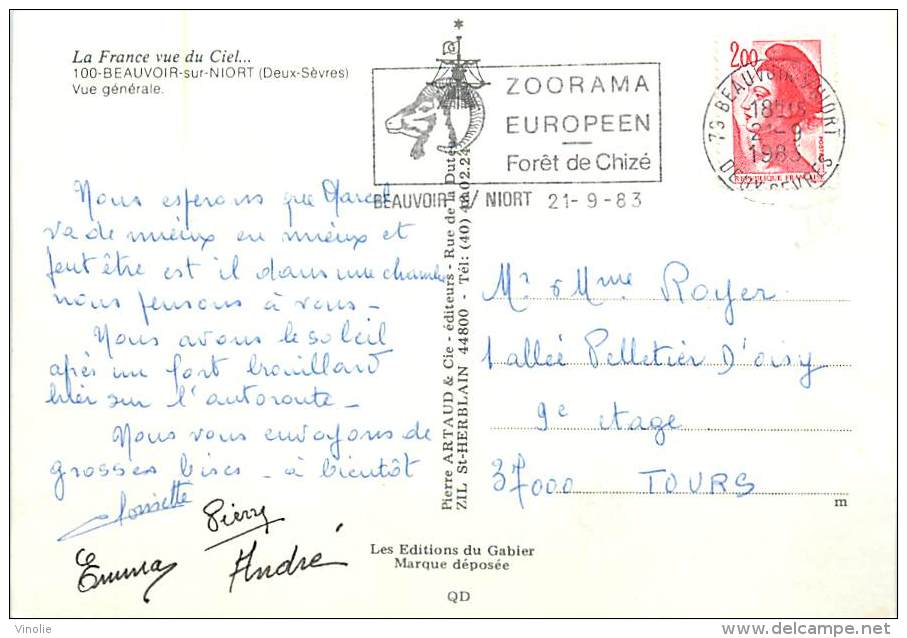 La France vue du Ciel...
100-BEAUVOIR-sur-NIORT (Deux-Sèvres)
Vue générale.
ZOORAMA
EUROPEEN
Forêt de Chizé
BEAUVOIR S/ NIORT 21-9-83
2,00
79 BEAUVOIR S NIORT
18H15
21-9
1983
DEUX-SEVRES
REPUBLIQUE FRANCAISE
Nous esperons que Marcel
va de mieux en mieux et
peut être est il dans une chambre
nous pensons à vous -
Nous avons le soleil
après un fort brouillard
hier sur l'autoroute -
Nous vous envoyons de
grosses bises - à bientôt
Pierre
Emma André
Pierre ARTAUD & Cie - éditeurs - Rue de la Dutée
ZIL St-HERBLAIN 44800 - Tél: (40) 46.02.24
Mr & Mme Royer
1 allée Pelletier D'oisy
9e etage
37000 TOURS
m
Les Editions du Gabier
Marque déposée
QD
Vinolie
delcampe.net